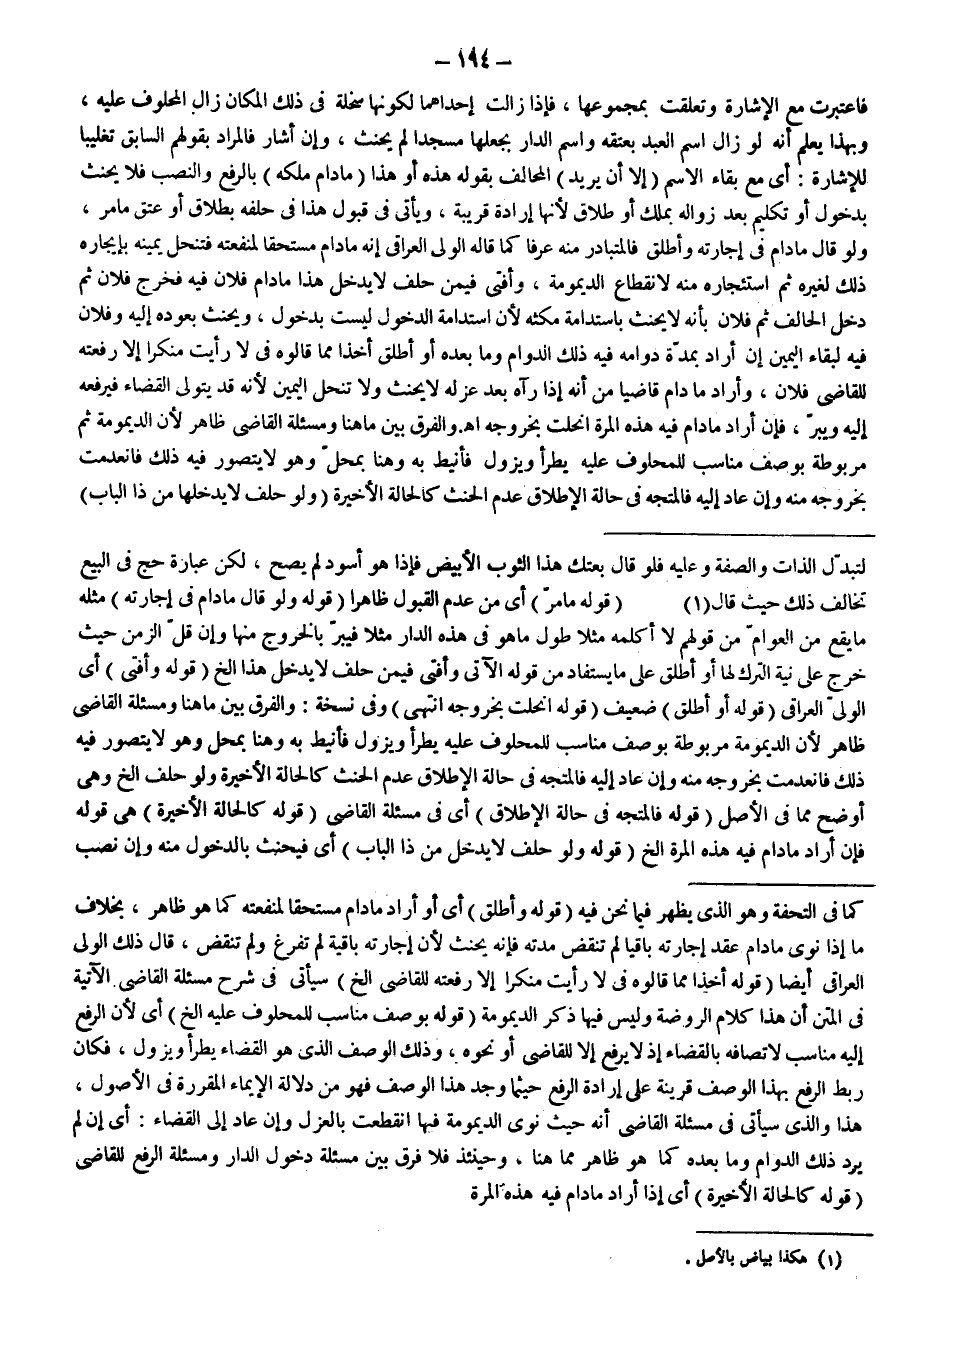 – ١٩٤ –
فاعتبرت مع الإشارة وتعلقت بمجموعها ، فإذا زالت إحداهما لكونها سخلة فى ذلك المكان زال المحلوف عليه ،
وبهذا يعلم أنه لو زال اسم العبد بعتقه واسم الدار بجعلها مسجدا لم يحنث ، وإن أشار فالمراد بقولهم السابق تغليبا
للإشارة : أى مع بقاء الاسم (إلا أن يريد) المحالف بقوله هذه أو هذا (مادام ملكه) بالرفع والنصب فلا يحنث
بدخول أو تكليم بعد زواله بملك أو طلاق لأنها إرادة قريبة ، ويأتى فى قبول هذا فى حلفه بطلاق أو عتق مامر ،
ولو قال مادام فى إجارته وأطلق فالمتبادر منه عرفا كما قاله الولى العراقى إنه مادام مستحقا لمنفعته فتنحل يمينه بإيجاره
ذلك لغيره ثم استئجاره منه لانقطاع الديمومة ، وأفتى فيمن حلف لايدخل هذا مادام فلان فيه فخرج فلان ثم
دخل الحالف ثم فلان بأنه لايحنث باستدامة مكثه لأن استدامة الدخول ليست بدخول ، ويحنث بعوده إليه وفلان
فيه لبقاء اليمين إن أراد بمدّة دوامه فيه ذلك الدوام وما بعده أو أطلق أخذا مما قالوه فى لا رأيت منكرا إلا رفعته
للقاضى فلان ، وأراد مادام قاضيا من أنه إذا رآه بعد عزله لايحنث ولا تنحل اليمين لأنه قد يتولى القضاء فيرفعه
إليه ويبرّ ، فإن أراد مادام فيه هذه المرة انحلت بخروجه اهـ. والفرق بين ماهنا ومسئلة القاضى ظاهر لأن الديمومة ثم
مربوطة بوصف مناسب للمحلوف عليه يطرأ ويزول فأنيط به وهنا بمحلّ وهو لايتصور فيه ذلك فانعدمت
بخروجه منه وإن عاد إليه فالمتجه فى حالة الإطلاق عدم الحنث كالحالة الأخيرة (ولو حلف لايدخلها من ذا الباب)
لتبدّل الذات والصفة وعليه فلو قال بعتك هذا الثوب الأبيض فإذا هو أسود لم يصح ، لكن عبارة حج فى البيع
تخالف ذلك حيث قال(١) (قوله مامرّ) أى من عدم القبول ظاهرا (قوله ولو قال مادام فى إجارته) مثله
مايقع من العوامّ من قولهم لا أكلمه مثلا طول ماهو فى هذه الدار مثلا فيبرّ بالخروج منها وإن قلّ الزمن حيث
خرج على نية الترك لها أو أطلق على مايستفاد من قوله الآتى وأفتى فيمن حلف لايدخل هذا الخ (قوله وأفتى) أى
الولىّ العراقى (قوله أو أطلق) ضعيف (قوله انحلت بخروجه انتهى) وفى نسخة : والفرق بين ماهنا ومسئلة القاضى
ظاهر لأن الديمومة مربوطة بوصف مناسب للمحلوف عليه يطرأ ويزول فأنيط به وهنا بمحل وهو لايتصور فيه
ذلك فانعدمت بخروجه منه وإن عاد إليه فالمتجه فى حالة الإطلاق عدم الحنث كالحالة الأخيرة ولو حلف الخ وهى
أوضح مما فى الأصل (قوله فالمتجه فى حالة الإطلاق) أى فى مسئلة القاضى (قوله كالحالة الأخيرة) هى قوله
فإن أراد مادام فيه هذه المرة الخ (قوله ولو حلف لايدخل من ذا الباب) أى فيحنث بالدخول منه وإن نصب
كما فى التحفة وهو الذى يظهر فيما نحن فيه (قوله وأطلق) أى أو أراد مادام مستحقا لمنفعته كما هو ظاهر ، بخلاف
ما إذا نوى مادام عقد إجارته باقيا لم تنقض مدته فإنه يحنث لأن إجارته باقية لم تفرغ ولم تنقض ، قال ذلك الولى
العراقى أيضا (قوله أخذا مما قالوه فى لا رأيت منكرا إلا رفعته للقاضى الخ) سيأتى فى شرح مسئلة القاضى الآتية
فى المتن أن هذا كلام الروضة وليس فيها ذكر الديمومة (قوله بوصف مناسب للمحلوف عليه الخ) أى لأن الرفع
إليه مناسب لاتصافه بالقضاء إذ لايرفع إلا للقاضى أو نحوه ، وذلك الوصف الذى هو القضاء يطرأ ويزول ، فكان
ربط الرفع بهذا الوصف قرينة على إرادة الرفع حيثما وجد هذا الوصف فهو من دلالة الإيماء المقررة فى الأصول ،
هذا والذى سيأتى فى مسئلة القاضى أنه حيث نوى الديمومة فيها انقطعت بالعزل وإن عاد إلى القضاء : أى إن لم
يرد ذلك الدوام وما بعده كما هو ظاهر مما هنا ، وحينئذ فلا فرق بين مسئلة دخول الدار ومسئلة الرفع للقاضى
(قوله كالحالة الأخيرة) أى إذا أراد مادام فيه هذه المرة
(١) هكذا بياض بالأصل .